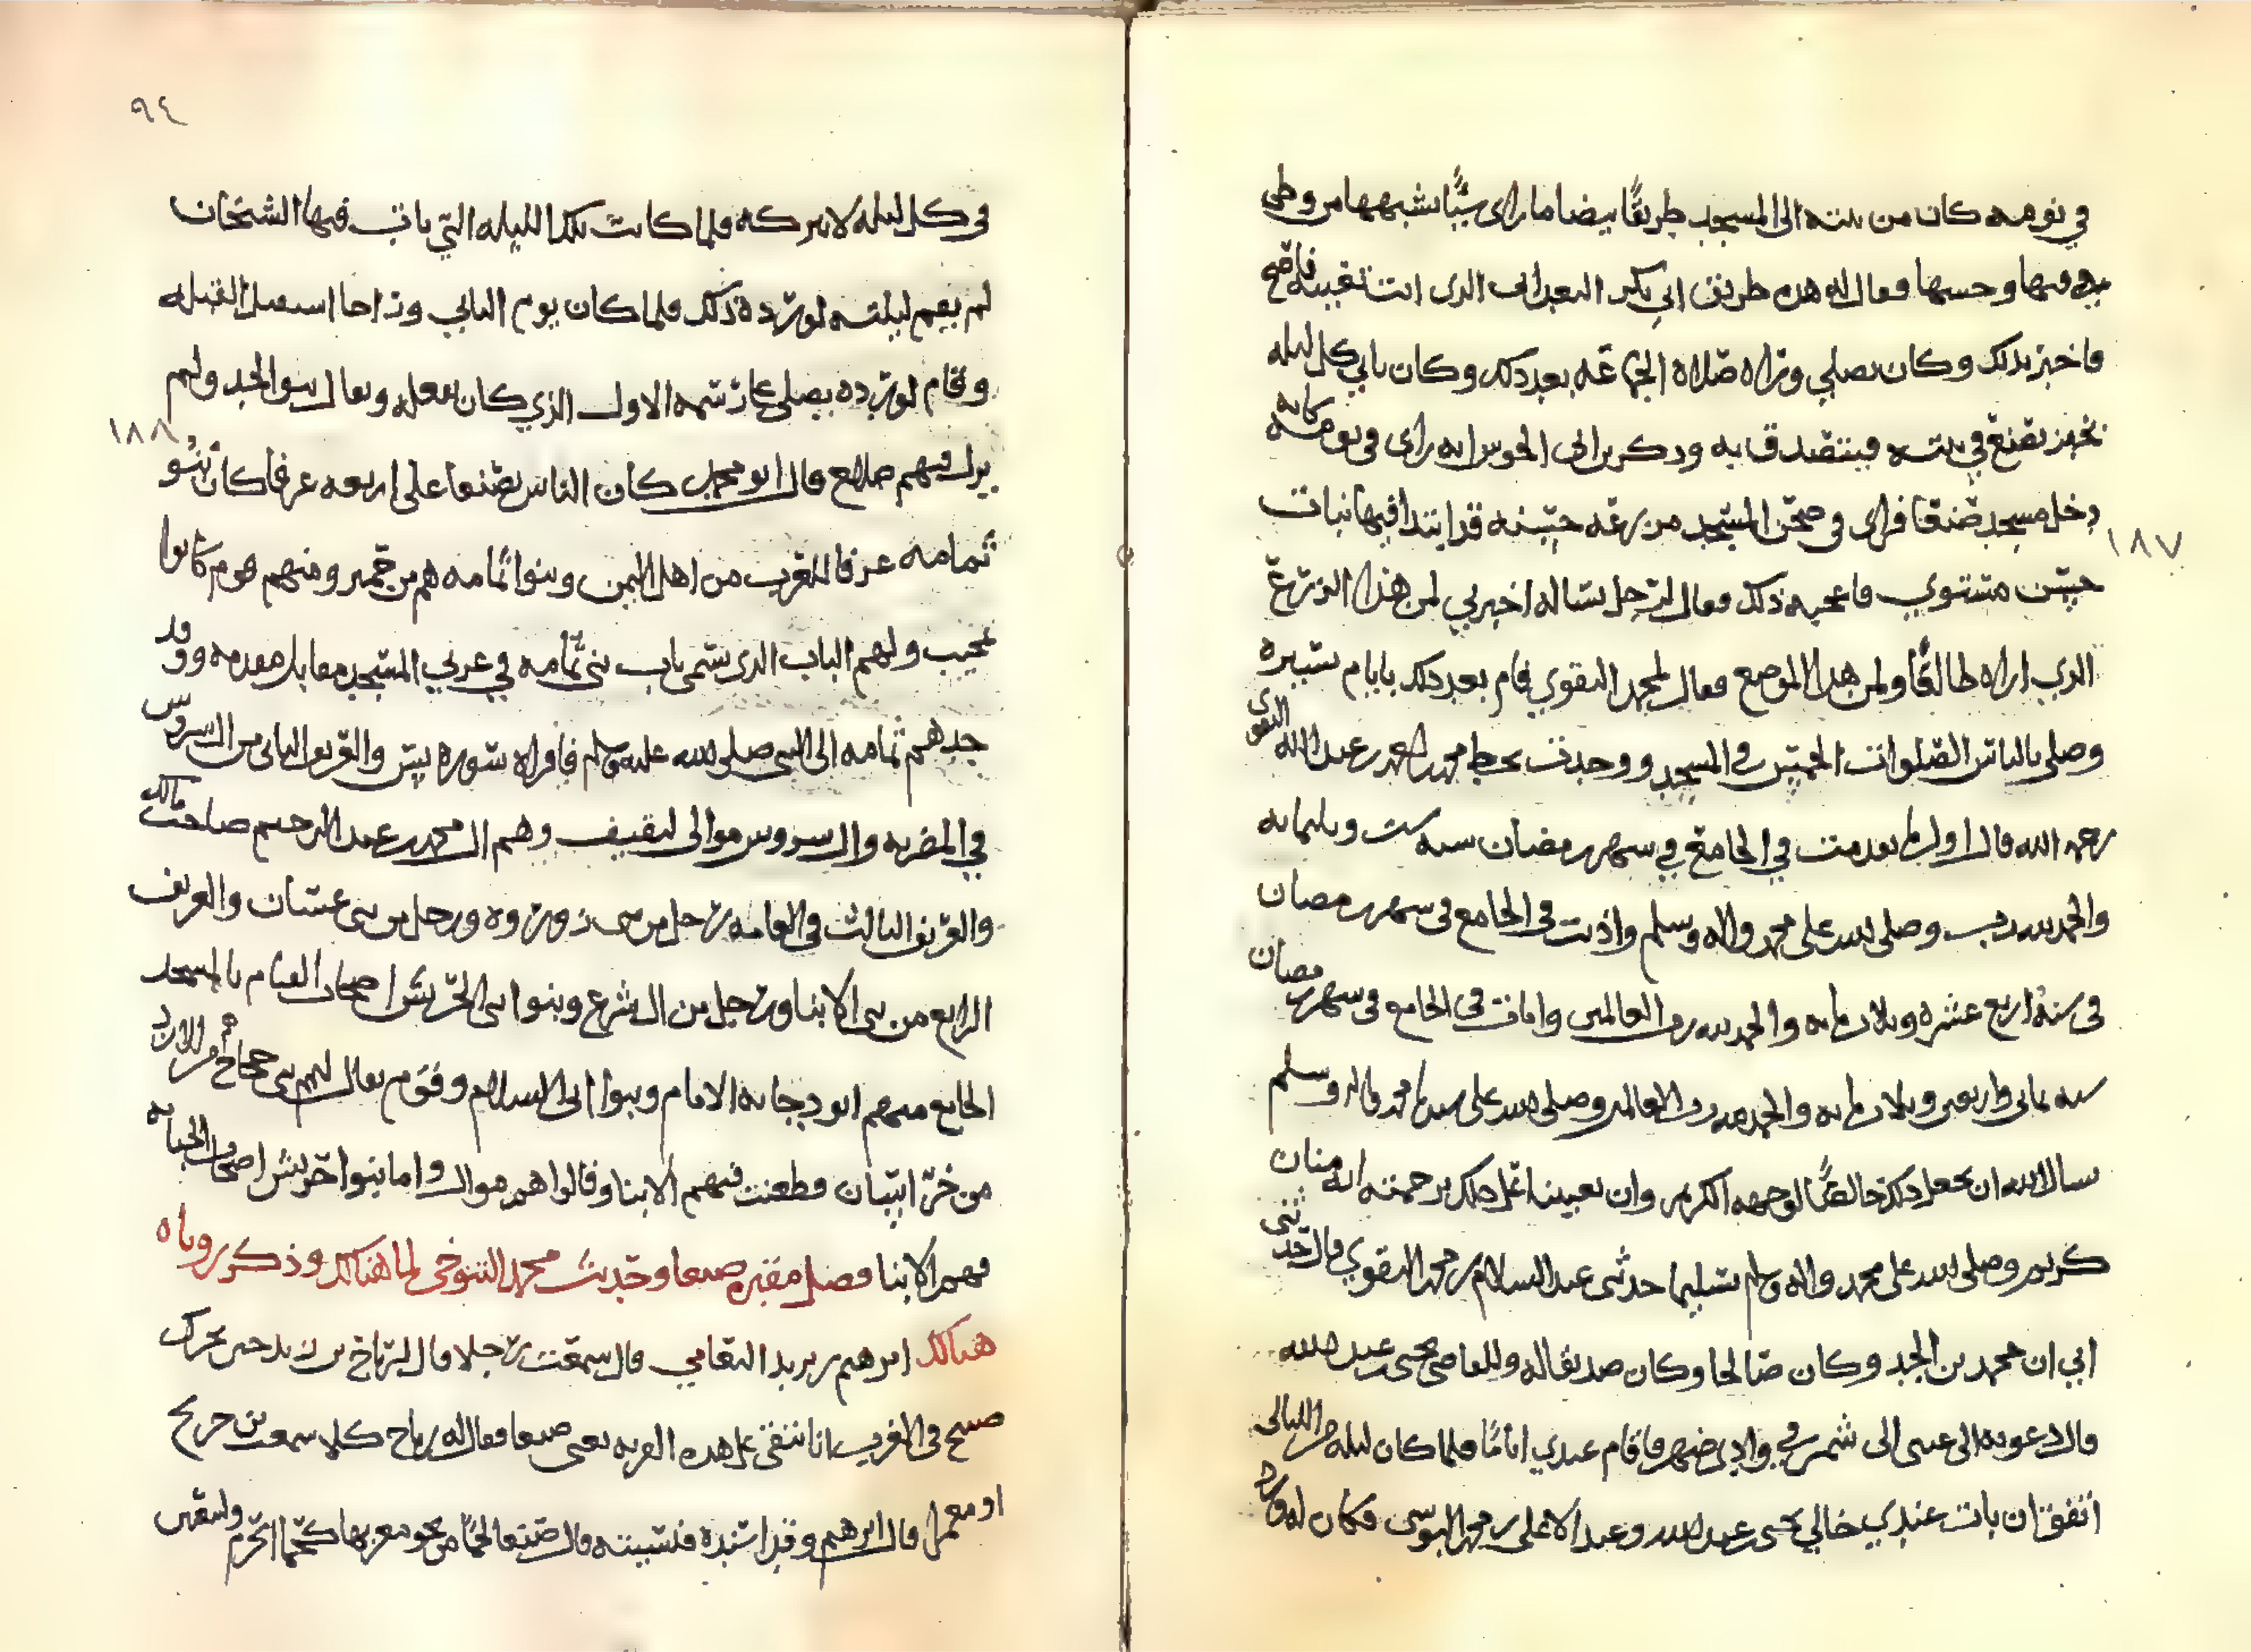 في نومه كان من بيته الى المسجد طريقا بيضا ما راى شيا يشبهها من وطى
فيها وحسنها فقال له هذه طريق ابي بكر البعداني الذي انت تغتبه فاصبح
فاخبر بذلك وكان يصلي وراه صلاة الجماعه بعد ذلك وكان ياتي كل ليله
بخبز يقنع في بيته فيتصدق به وذكر بن ابي الحوس انه راى في نومه كانه
دخل مسجد صنعا فراى في صحن المسجد مزرعه حسنه قد ابتدا فيها نبات
حسن مستوي فاعجبه ذلك فقال لرجل يساله اخبرني لمن هذا الزرع
الذي اراه طالعا ولمن هذا الموضع فقال لمحمد النقوي فام بعد ذلك بايام يسيره
وصلى بالناس الصلوات الخمس في المسجد ووجدت بخط محمد بن احمد بن عبد الله النقوى
رحمه الله قال اول ما تقدمت في الجامع في شهر رمضان سنه ست وثلثمائه
والحمد لله رب وصلى الله على محمد واله وسلم واذنت في الجامع في شهر رمضان
في سنة اربع عشره وثلاث مايه والحمد لله رب العالمين واقامت في الجامع في شهر رمضان
سنه ثماني واربعين وثلاث مايه والحمد لله رب العالمين وصلى الله على سيدنا محمد واله وسلم
سالا لله ان يجعل ذلك خالصا لوجهه الكريم وان يعيننا على ذلك برحمته انه منان
كريم وصلى الله على محمد واله وسلم تسليما حدثنى عبد السلام بن محمد النقوي قال حدثنى
ابي ان محمد بن الجد وكان صالحا وكان صديقا له وللقاضى يحيى بن عبد الله
قال دعوته الى عنبى الى شمر في وادي ضهر فاقام عندي اياما فلما كان ليله من الليالى
اتفق ان بات عندي خالي يحيى بن عبد الله وعبد الاعلى بن محمد البوسى فكان له ورد
٩٤
في كل ليله لا يتركه فلما كانت تلك الليله التي بات فيها الشيخان
لم يقم ليلته لورده ذلك فلما كان يوم الثاني وراحا استقبل القبله
وقام لورده يصلي على رسمه الاول الذي كان يفعله وتعال بنو الجد ولم
يزل فيهم صالح قال ابو محمد كان الناس بصنعا على اربعه عرفا كان بنو
ثمامه عرفا للغرب من اهل اليمن وبنوا ثمامه هم من حمير ومنهم قوم كانوا
نجيب ولهم الباب الذي يسمى باب بنى ثمامه في غربي المسجد مقابل مقدمه ووفد وفد
جدهم ثمامه الى النبي صلى الله عليه وسلم فاقراه سوره يس والعريف الثاني من ال سروس
في المضريه وال سروس موالى لثقيف وهم ال محمد بن عبد الرحيم صاحب مالك
والعريف الثالث في العامه رجل من بنى زورزوه ورجل من بني غسان والعريف
الرابع من بني الابنا ورجل من ال شرع وبنوا بني الحريش اصحاب القيام بالمسجد
الجامع منهم ابو دجانه الامام وبنوا ابي السلام وقوم يقال لهم بنى حجاج هم من الازد
من خراسان وطعنت فيهم الابنا وقالوا هم موال واما بنوا حريش اصحاب الجبانه
فهم الابنا فصل مقبره صنعا وحديث محمد التنوخى لما هنالك وذكر روياه
هنالك ابرهيم بن يزيد الثقامي قال سمعت رجلا قال لرباح بن زيد حين تحرك
صبح في الغرب انا نتقي على هذه القريه يعنى صنعا فقال له رباح كلا سمعت بن جريج
او معمرا قال ابرهيم وقد اسنده فنسيته قال صنعا لحما من نحو مغربها كحما الحرم ولتقين
١٨٧
١٨٨